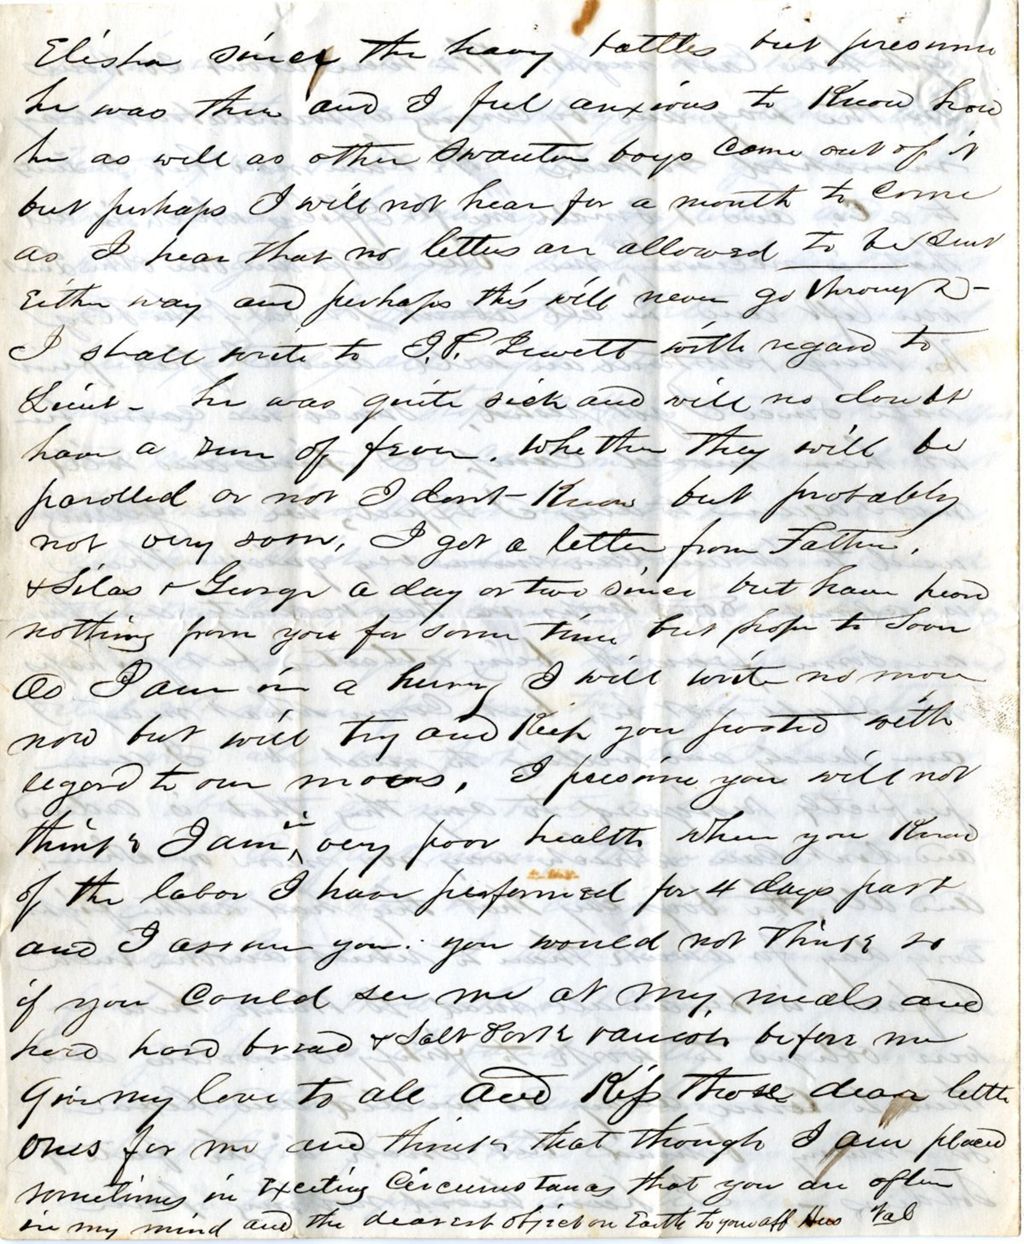 Elisha since the heavy battles but presume
he was there and I feel anxious to Know how
he as well as other Swanton boys come out of it
but perhaps I will not hear for a month to come
as I hear that no letters are allowed to be sent
Either way and perhaps this will never go through -
I shall write to J.P. Jewett with regard to
Lieut - he was quite sick and will no doubt
have a run of fever. Whether they will be
parolled or not I dont Know but probably
not very soon, I got a letter from Father,
& Silas & George a day or two since but have heard
nothing from you for some time but hope to soon
As I am in a hurry I will write no more
now but will try and Keep you posted with
regard to our moves, I presume you will not
think I am in very poor health when you Know
of the labor I have performed for 4 days past
and I assure you you would not think so
if you could see me at my meals and
hard bread & Salt Pork vanish before me
Give my love to all and Kiss those dear little
ones for me and think that though I am placed
sometimes in Exciting Circumstances that you are often
in my mind and the dearest object on Earth to your aff Hus Val